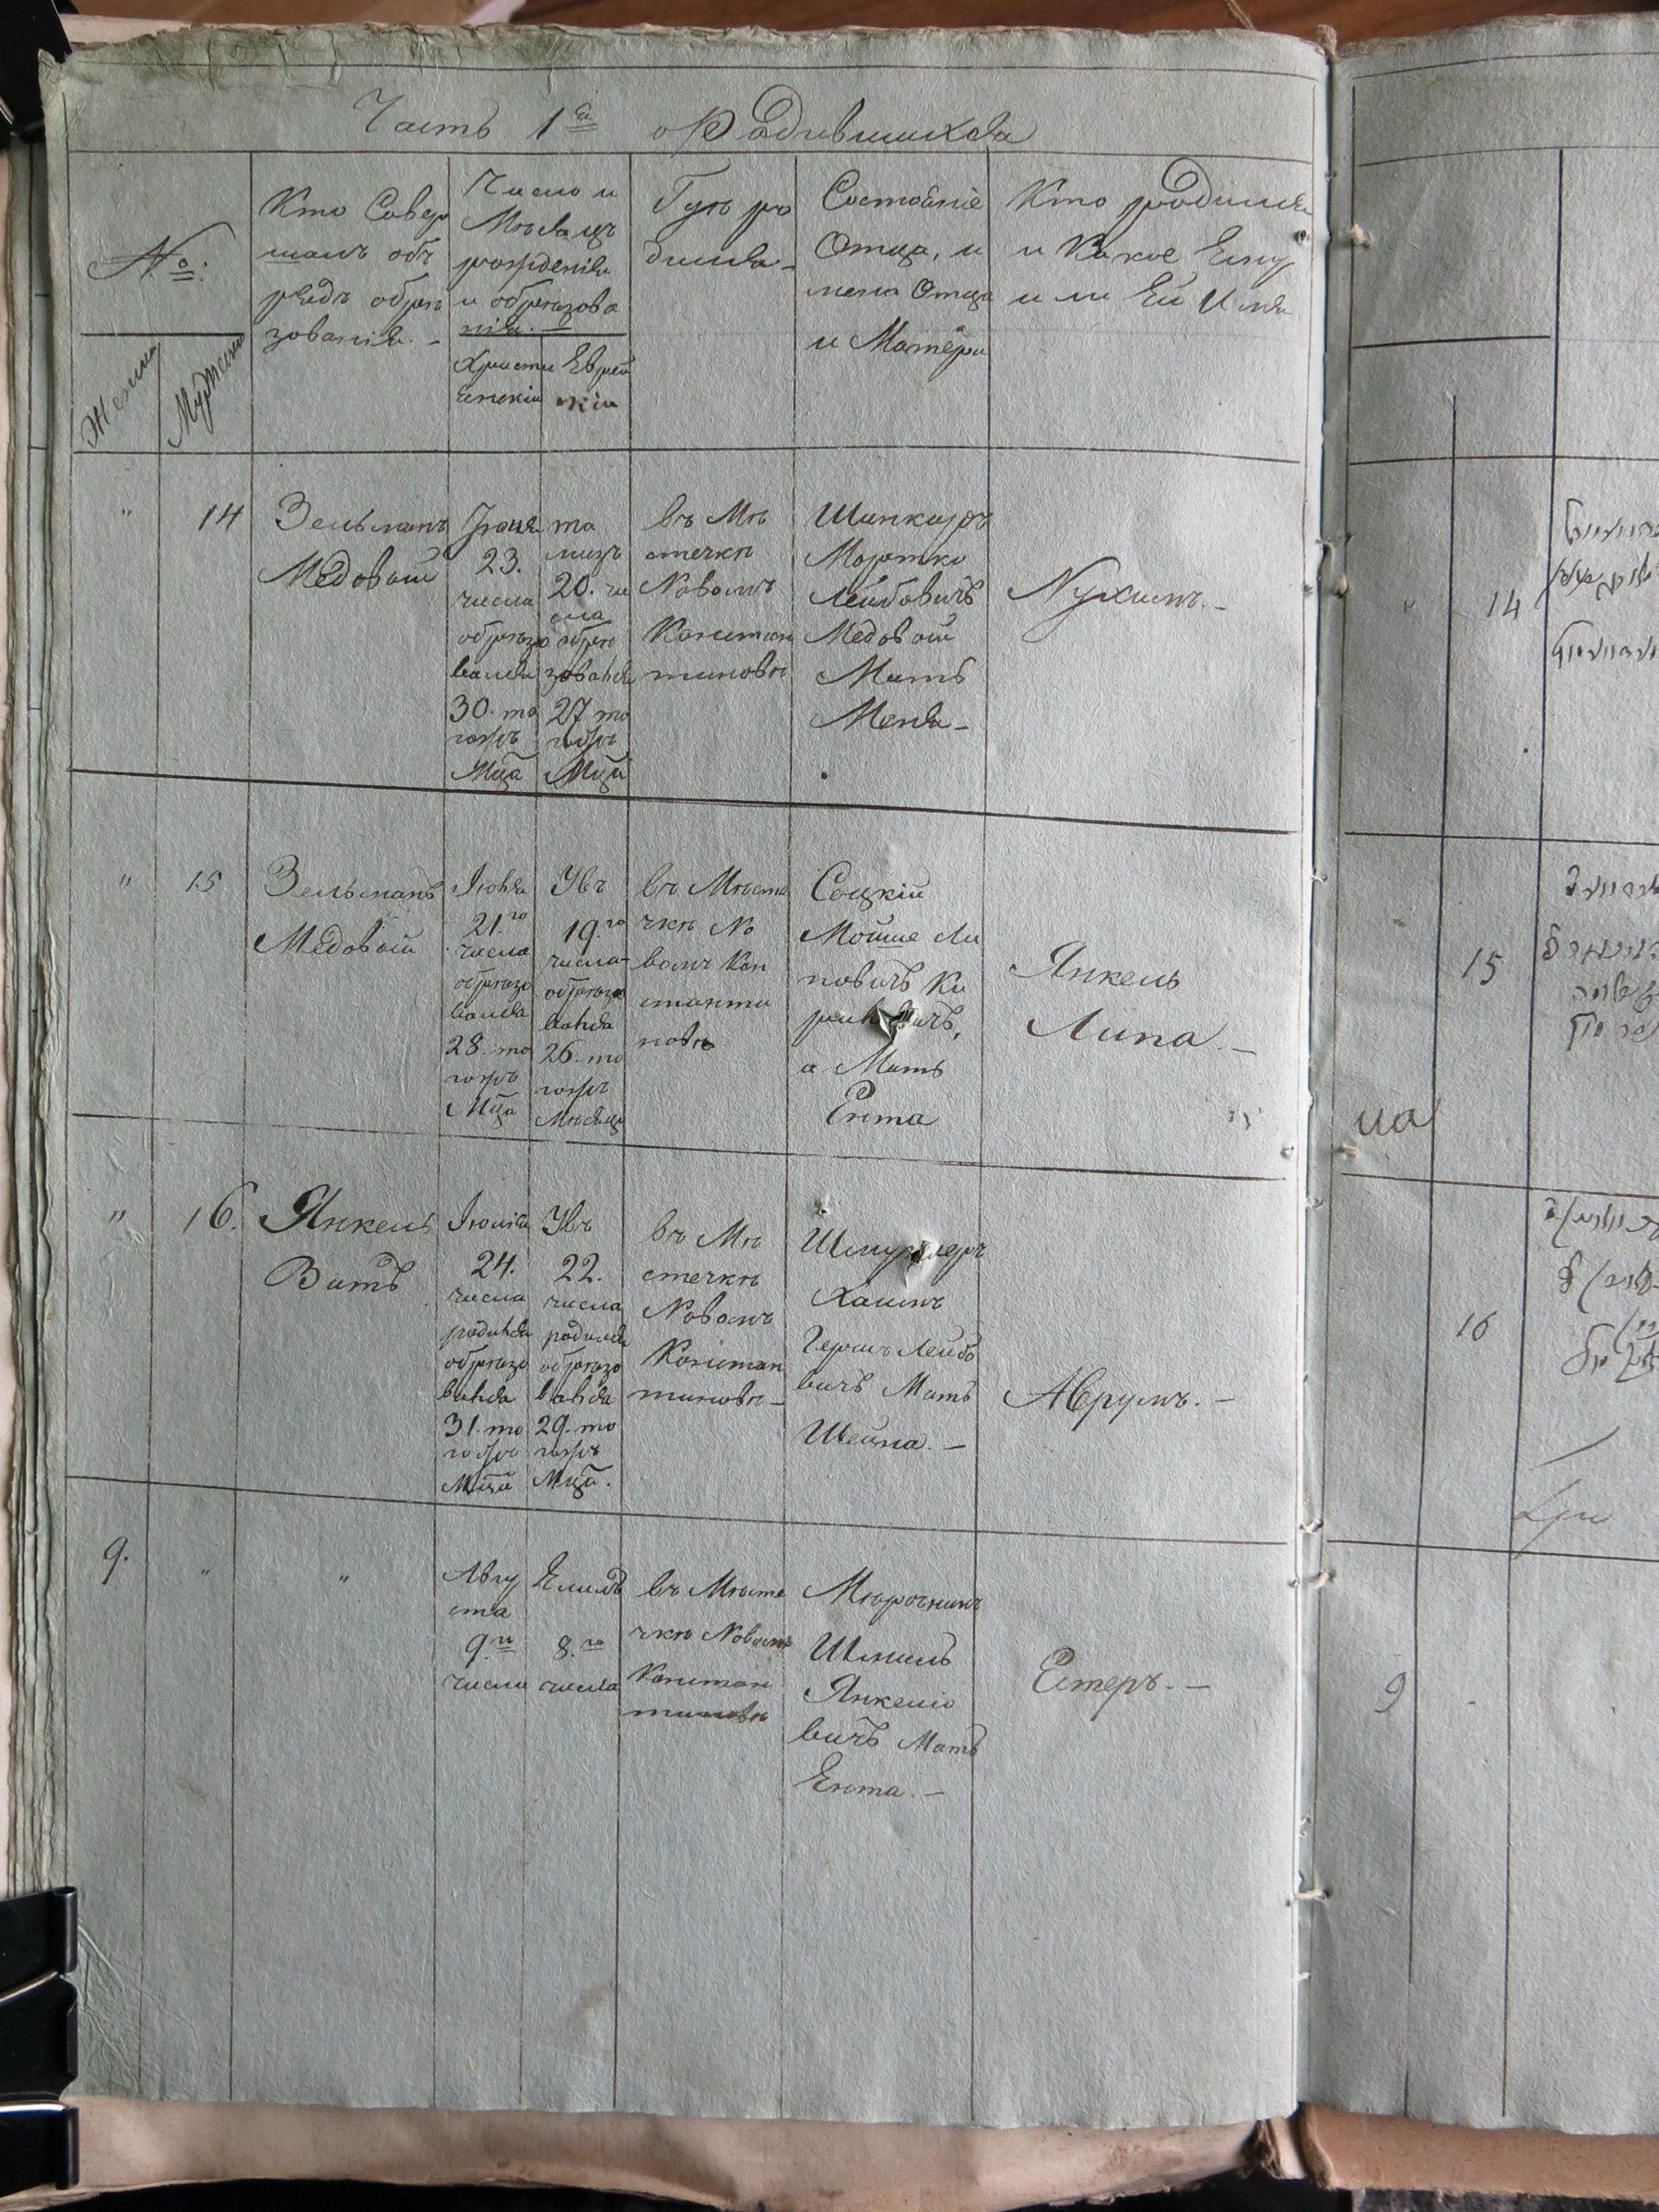 Часть 1ая о Родившихся
№:
Женска
Мужеска
Кто Совер
шалъ об
рядъ обрѣ
зованія. -
Число и
Мѣсяцъ
рожденія
и обрѣзова
нія. -
Христи
янскій
Еврей
скій
Гдѣ ро
дился -
Состояніе
Отца, и
мена Отца
и Матери
Кто родился
и Какое Ему
или Ей Имя
"
14
Зельманъ
Медовой
23.
числа
обрѣзо
вался
30. то
гожъ
Мца
та
музъ
20. чи
сла
обрѣ
зовался
27 то
гожъ
Мца
въ Мѣ
стечкѣ
Новомъ
Констан
тиновѣ
Шинкаръ
Мортко
Лейбовичъ
Медовой
Мать
Меня -
Нухимъ. -
14
"
15
Зельманъ
Медовой
Іюля
21.го
числа
обрѣзо
вался
28. то
гожъ
Мца
Увъ
19.го
числа
обрѣзо
вался
26. то
гожъ
Мѣсяца
въ Мѣсте
чкѣ Но
вомъ Кон
станти
новѣ
Соцкій
Мойше Ли
повичъ Ки
а Мать
Ента
Янкель
Липа. -
15
"
16.
Янкель
Витъ
Іюля
24.
числа
родился
обрѣзо
вался
31. то
гожъ
Мца
Увъ
22.
числа
родился
обрѣзо
вался
29. то
гожъ
Мца.
въ Мѣ
стечкѣ
Новомъ
Констан
тиновѣ -
Хаимъ
Гершъ Лейбо
вичъ Мать
Шейна. -
Аврумъ. -
16
9.
"
"
Авгу
ста
9го
числа
Елиль
8.го
числа
въ Мѣсте
чкѣ Новомъ
Констан
тиновѣ
Мѣрочникъ
Шмиль
Янкелю
вичъ Мать
Ента. -
Естеръ. -
9